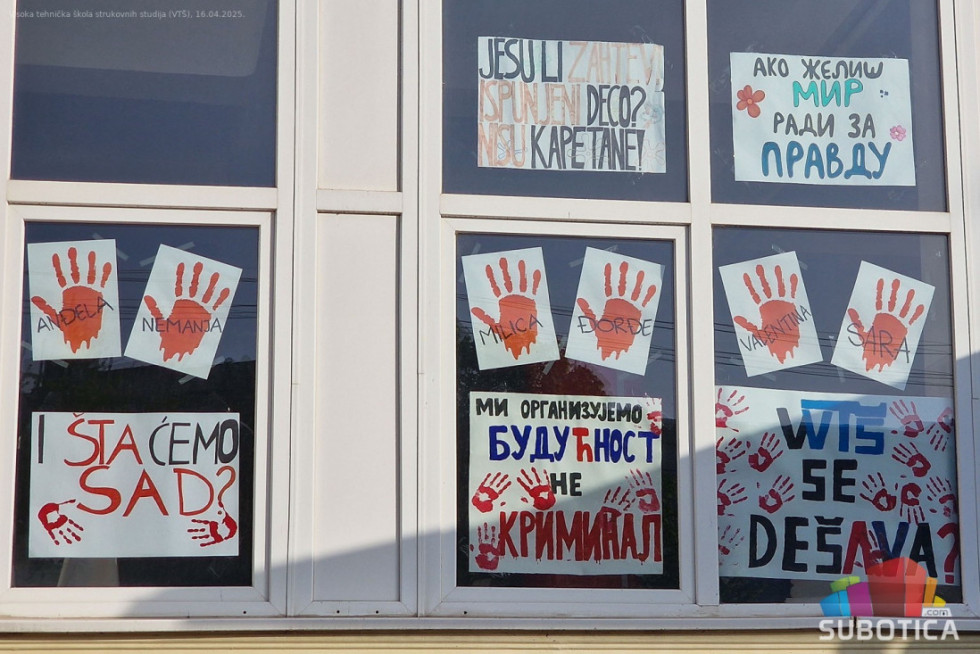 visoka tehnička škola strukovnih studija (VTŠ), 16.04.2025.
JESU LI ZAHTEVI
ISPUNJENI DECO?
NISU KAPETANE!
АКО ЖЕЛИШ
МИР
РАДИ ЗА
ПРАВДУ
ANĐELA
NEMANJA
MILICA
ĐORĐE
VALENTINA
SARA
I ŠTA ĆEMO
SAD?
МИ ОРГАНИЗУЈЕМО
БУДУЋНОСТ
НЕ
КРИМИНАЛ
VVTŠ
SE
DEŠAVA?
.com
SUBOTICA